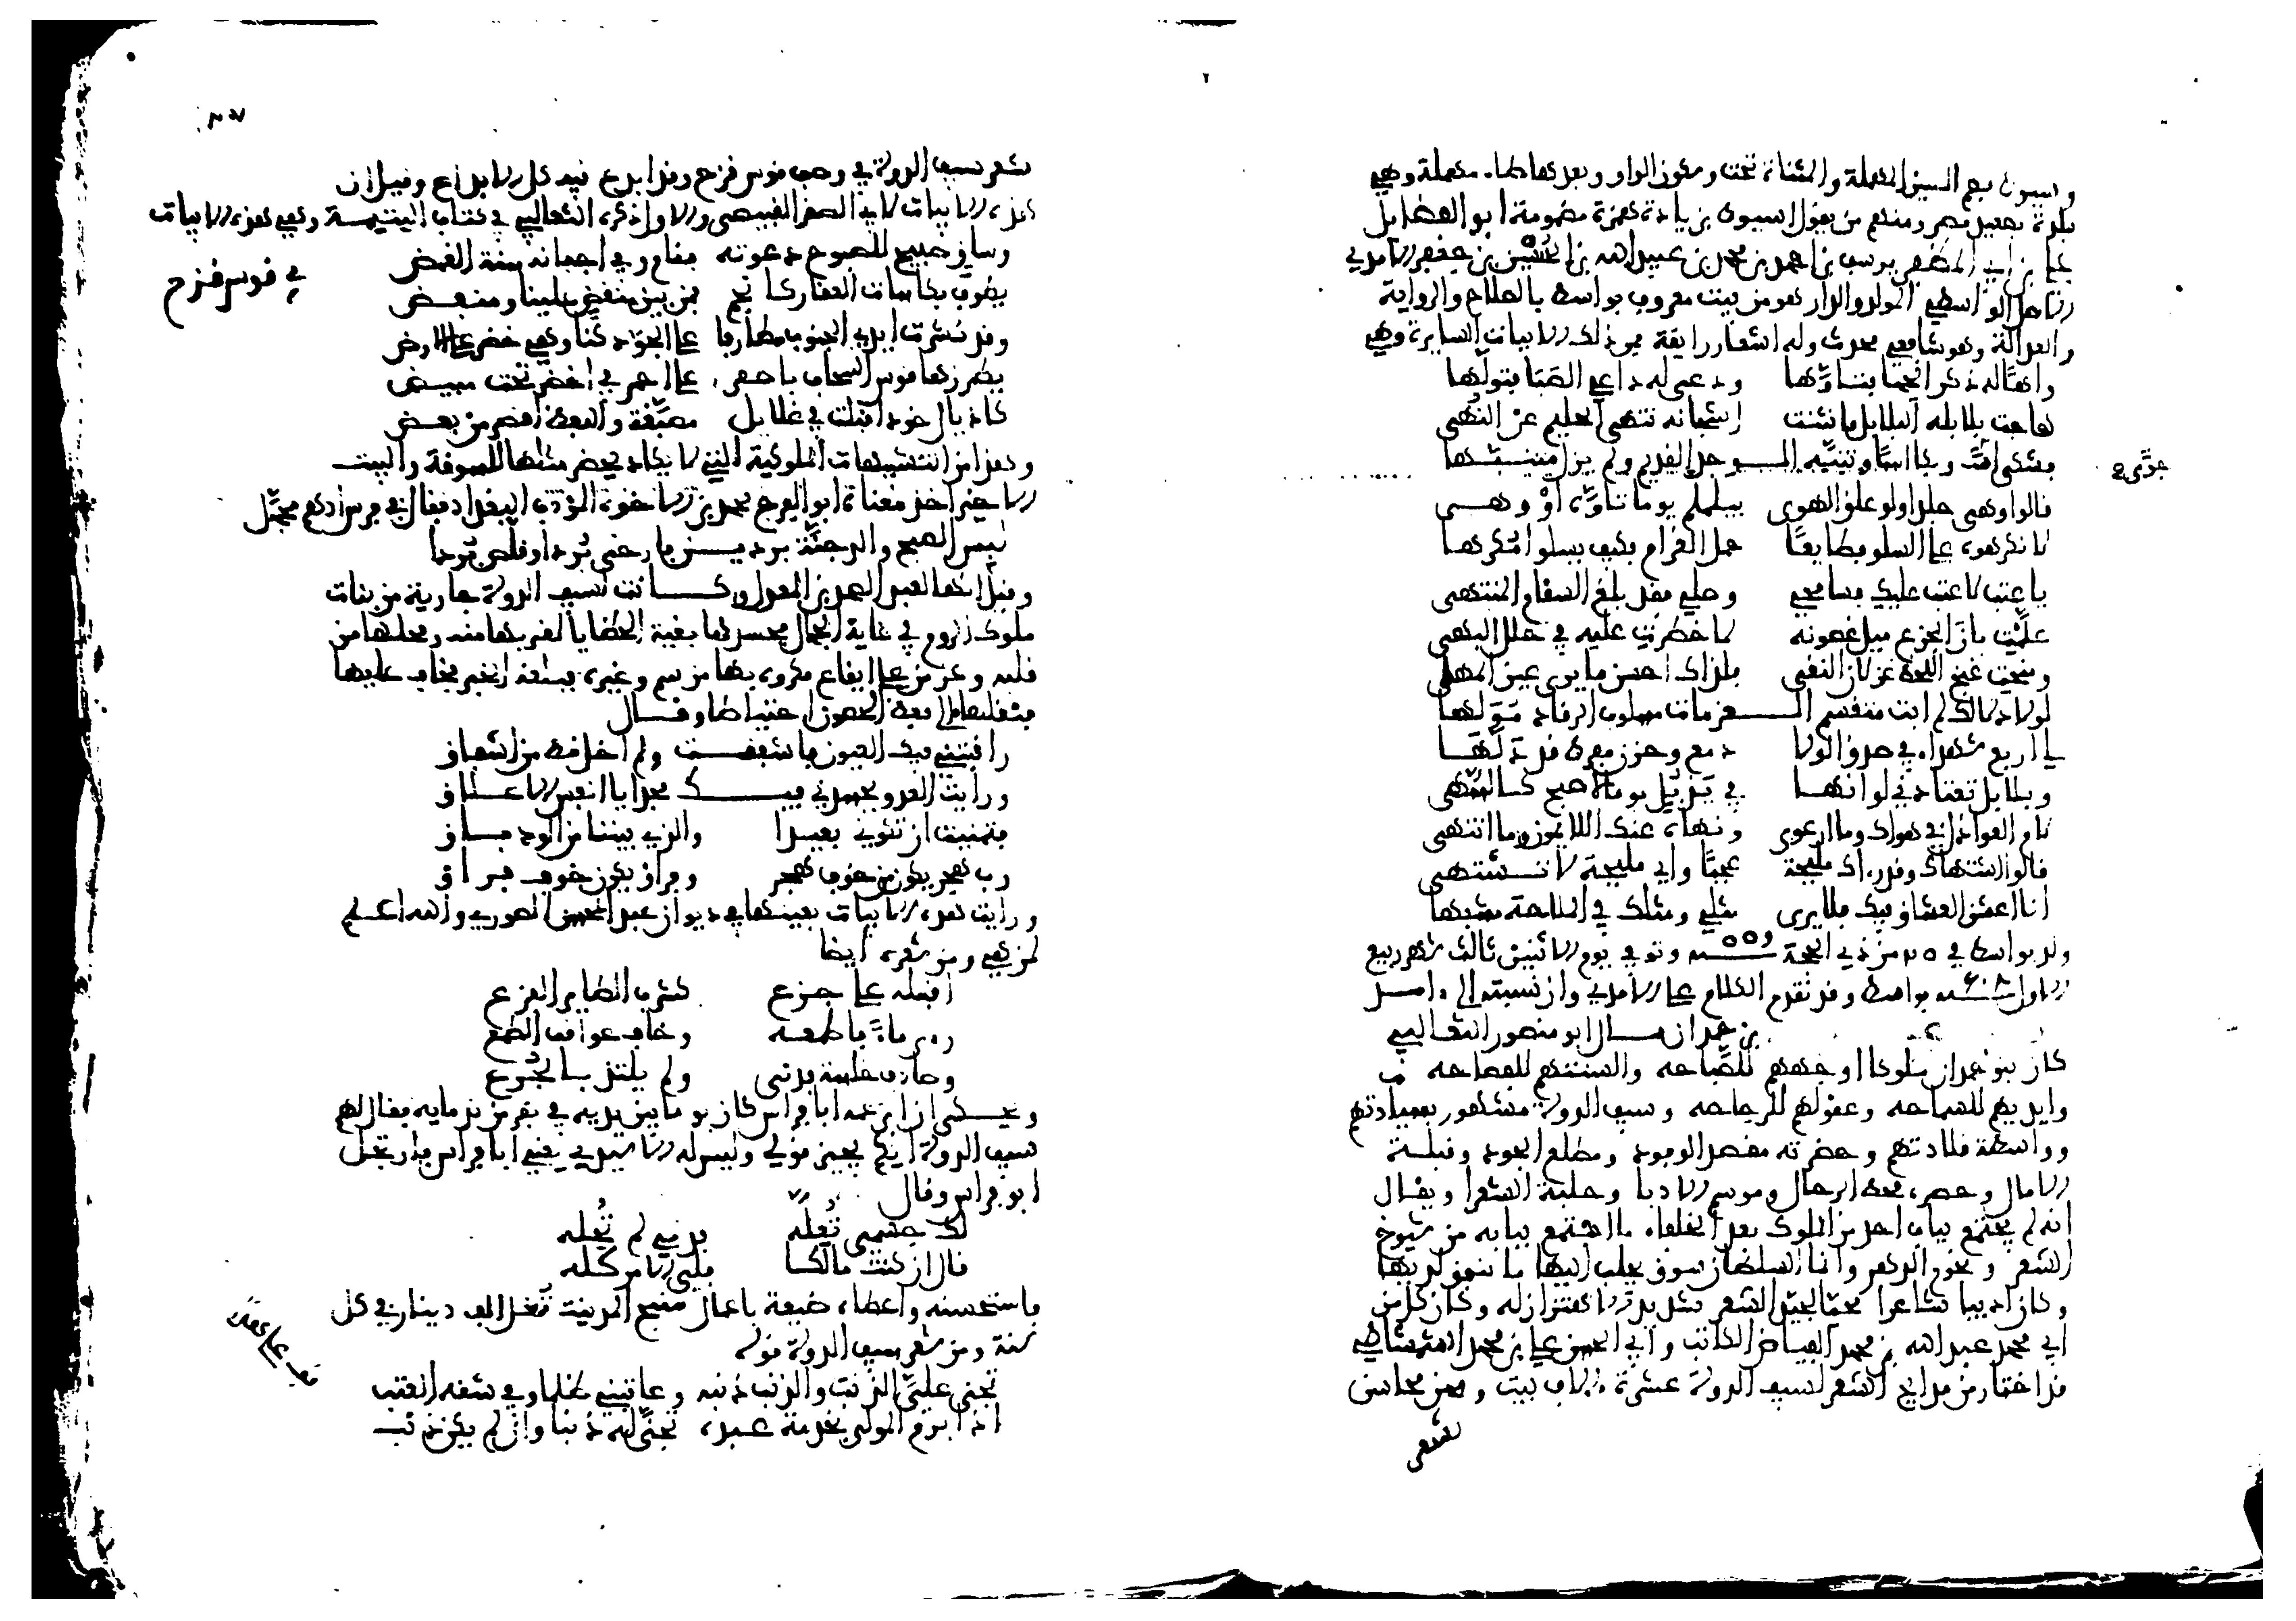 وسيوط بضم السين المهملة والمثناة تحت وسكون الواو وبعدها طاء مهملة وهي
بلدة بصعيد مصر ومنهم من يقول اسيوط بزيادة همزة مضمومة ابو الفضايل
علي بن ابي المظفر يوسف بن احمد بن محمد بن عبيد الله بن الحسين بن جعفر الامدي
الاصل الواسطي المولد والدار هو من بيت معروف بواسط بالصلاح والرواية
والعدالة وهو شافعي محدث وله اشعار رايقة فمن ذلك الابيات السايرة وهي
واها له ذكر الحما فتاوّها ودعى له داعي الصبا فتولّها
هاجت بلابله البلابل فانثنت اشجانه تثنى الحليم عن النهى
فشكى جوّى وبكا اسّا وتنبّه الـوجد القديم ولم يزل متنبها
قالوا وهى جلدا ولو علق الهوى بيلملم يوما تاوّه او وهى
لا تكرهوه على السلو فطايعًا حمل الغرام فكيف يسلوا مكرها
يا عتب لا عتب عليك فسامحي وصلي فقد بلغ السقام المنتهى
علّمت بان الجزع ميل غصونه لما خطرت عليه في حلل البهى
ومنحت غنج اللحظ غزلان النقى فلذاك احسن ما يرى عين المها
لولا دلالك لم ابت متقسم الـعزمات مسلوب الرقاد مولّها
لي اربع شهداء في صدق الولا دمع وحزن مفرط قد دلّها
وبلابل تعتادني لو انها في يذبل يوما لاصبح كالسّهى
لام العواذل في هواك وما ارعوى ونهاه عنك اللايمون وما انتهى
قالوا اشتهاك وقد رءاك مليحة عجبًا واي مليحة لا تشتهى
انا اعشق العشاق فيك فلا يرى مثلي ومثلك في الملاحة مشبها
ولد بواسط في 25 من ذي الحجة سنة 559 وتوفي يوم الاثنين ثالث شهر ربيع
الاول سنة 608 بواسط وقد تقدم الكلام على الامدي وان نسبته الى ءامد
بن حمدان قال ابو منصور الثعالبي
كان بنو حمدان ملوكا اوجههم للصّباحه والسنتهم للفصاحه
وايديهم للسماحه وعقولهم للرجاحه وسيف الدولة مشهور بسيادتهم
وواسطة قلادتهم وحضرته مقصد الوفود ومطلع الجود وقبلة
الامال ومحط الرحال وموسم الادبا وحلبة الشعرا ويقال
انه لم يجتمع بباب احد من الملوك بعد الخلفاء ما اجتمع ببابه من شيوخ
الشعر ونجوم الدهر وانما السلطان سوق يجلب اليها ما ينفق لديها
وكان اديبا شاعرا محبّا لجيّد الشعر شديد الاهتزاز له وكان كل من
ابي محمد عبد الله بن محمد الفياض الكاتب وابي الحسن علي بن محمد الشمشاطي
قد اختار من مدايح الشعر لسيف الدولة عشرة ءالاف بيت ومن محاسن
شعر
شعر سيف الدولة في وصف قوس قزح وقد ابدع فيه كل الابداع وقيل ان
هذه الابيات لابي الصقر القبيصي والاول ذكره الثعالبي في كتاب اليتيمة وهي هذه الابيات
وساق صبيح للصبوح دعوته فقام وفي اجفانه سنة الغمض
في قوس قزح
يطوف بكاسات العقار كانجم فمن بين منقضّ علينا ومنفض
وقد نشرت ايدي الجنوب مطارفا على الجوّ دكنًّا وهي خضر على الارض
يطرزها قوس السحاب باصفر على احمر في اخضر تحت مبيض
كاذيال خود اقبلت في غلايل مصبّغة والبعض اقصر من بعض
وهذا من التشبيهات الملوكية التي لا يكاد يحضر مثلها للسوقة والبيت
الاخير اخذ معناه ابو الفرج محمد بن الاخوة المؤدب البغدادي فقال في فرس ادهم محجّل
لبس الصبح والدجنّة بردين فارخى بردا وقلّص بردا
وقيل انها لعبد الصمد بن المعدل وكانت لسيف الدولة جارية من بنات
ملوك الروم في غاية الجمال فحسدها بقية الحظايا لقربها منه ومحلها من
قلبه وعزمن على ايقاع مكروه بها من سم وغيره فبلغه الخبر فخاف عليها
فنقلها الى بعض الحصون احتياطا وقال
راقبتني فيك العيون فاشفقـت ولم اخل قط من اشفاق
ورايت العدو يحسدني فيـك مجدا يا انفس الاعلاق
فتمنيت ان تكوني بعيدا والذي بيننا من الود بـاق
رب هجر يكون من خوف هجر وفراق يكون خوف فراق
ورايت هذه الابيات بعينها في ديوان عبد المحسن الصوري والله اعلم
لمن هي ومن شعره ايضا
اقبله على جـزع كشرب الطاير الفزع
رءى ماءً فاطمعه وخاف عواقب الطمع
وصادف خلسة فدنى ولم يلتذ بالجُرع
ويحكى ان ابن عمه ابا فراس كان يوما بين يديه في نفر من ندمايه فقال لهم
سيف الدولة ايكم يجيز قولي وليس له الا سيدي يعني ابا فراس فارتجل
ابو فراس وقال
لك جسمى تُعلّه فدمي لم تُحله
قال ان كنت مالكا فلي الامر كله
فاستحسنه واعطاه ضيعة باعمال منبج المدينة تغل الفي دينار في كل
سنة ومن شعر سيف الدولة قوله
تجنى عليّ الذنب والذنب ذنبه وعاتبني ظلما وفي شقه العتب
اذا ابرم المولى بخدمة عبده تجنّى له ذنبا وان لم يكن ذنب